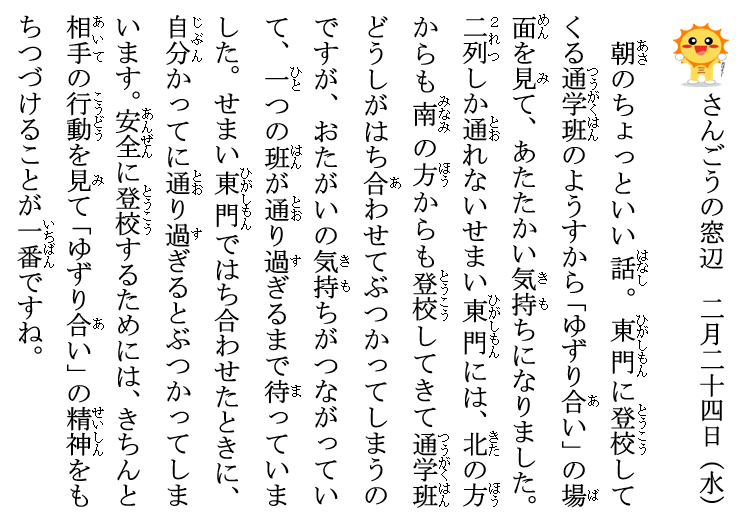 さんごうの窓辺　二月二十四日（水）
朝のちょっといい話。東門に登校して
くる通学班のようすから「ゆずり合い」の場
面を見て、あたたかい気持ちになりました。
二列しか通れないせまい東門には、北の方
からも南の方からも登校してきて通学班
どうしがはち合わせてぶつかってしまうの
ですが、おたがいの気持ちがつながってい
て、一つの班が通り過ぎるまで待っていま
した。せまい東門ではち合わせたときに、
自分かってに通り過ぎるとぶつかってしま
います。安全に登校するためには、きちんと
相手の行動を見て「ゆずり合い」の精神をも
ちつづけることが一番ですね。